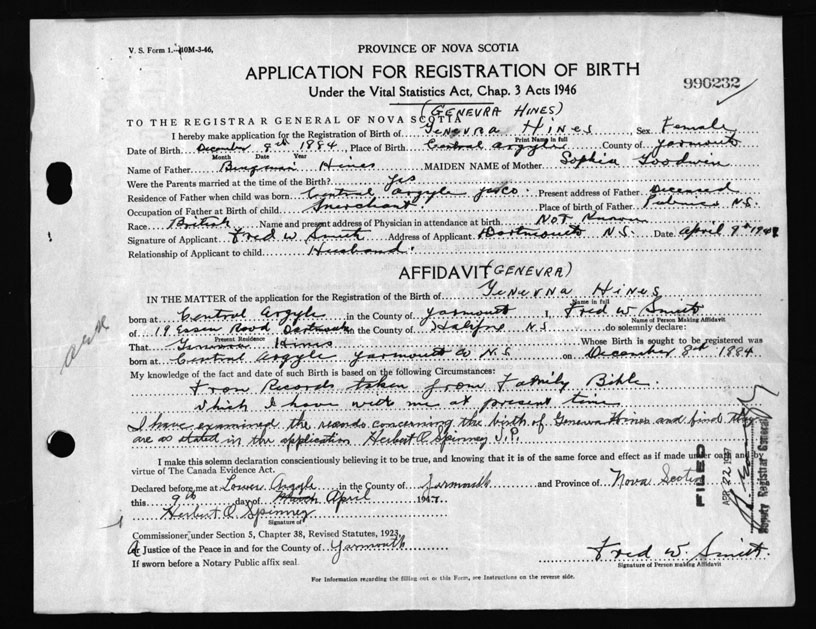 V. S. Form 1.—10M-3-46,
PROVINCE OF NOVA SCOTIA
APPLICATION FOR REGISTRATION OF BIRTH
990232
Under the Vital Statistics Act, Chap. 3 Acts 1946
(GENEVRA HINES)
TO THE REGISTRAR GENERAL OF NOVA SCOTIA
I hereby make application for the Registration of Birth of Genevra Hines Sex Female
Print Name in full
Date of Birth December 8th 1884, Place of Birth Central Argyle County of Yarmouth
Month Date Year
Name of Father Hines MAIDEN NAME of Mother Sophia Goodwin
Were the Parents married at the time of the Birth? Yes
Residence of Father when child was born Central Argyle Present address of Father Deceased
Occupation of Father at Birth of child Merchant Place of birth of Father Pubnico N.S.
Race British Name and present address of Physician in attendance at birth Not Known
Signature of Applicant Fred W Smith Address of Applicant Dartmouth N.S. Date April 9th 1947
Relationship of Applicant to child Husband
AFFIDAVIT (GENEVRA)
IN THE MATTER of the application for the Registration of the Birth of Genevra Hines
Name in full
born at Central Argyle in the County of Yarmouth I, Fred W. Smith
Name of Person Making Affidavit
of 19 Essen Road Dartmouth in the County of Halifax N S do solemnly declare:
Present Residence
That Genevra Hines Whose Birth is sought to be registered was
born at Central Argyle Yarmouth Co N.S on December 8th 1884
My knowledge of the fact and date of such Birth is based on the following Circumstances:
From Records taken from Family Bible
which I have with me at present time
I have examined the records concerning the birth of Geneva Hines and find they
are as stated in the application Herbert O. Spinney J.P.
I make this solemn declaration conscientiously believing it to be true, and knowing that it is of the same force and effect as if made under oath and by
virtue of The Canada Evidence Act.
Declared before me at Lower Argyle in the County of Yarmouth and Province of Nova Scotia
this 9th day of April 1947
Herbert O. Spinney
Signature of
Commissioner under Section 5, Chapter 38, Revised Statutes, 1923
A Justice of the Peace in and for the County of Yarmouth
If sworn before a Notary Public affix seal
Fred W. Smith
Signature of Person making Affidavit
For Information regarding the filling out of this Form, see Instructions on the reverse side.
FILED
APR 22 1947
Deputy Registrar General